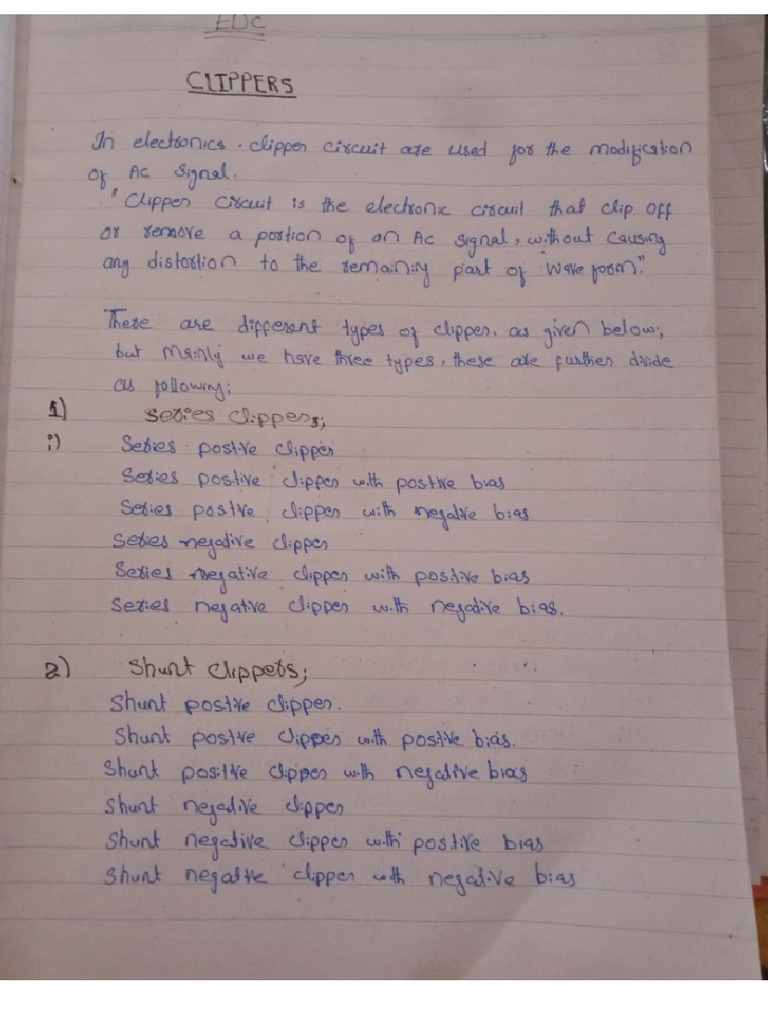 EDC
CLIPPERS
In electronics. clipper circuit are used for the modification
of AC signal.
"Clipper circuit is the electronic circuit that clip off
or remove a portion of an AC signal, without causing
any distortion to the remaining part of wave form."
These are different types of clipper, as given below;
but mainly we have three types, these are further divide
as following;
1) Series Clippers;
i) Series postive clipper
Series positive clipper with positive bias
Series postive clipper with negative bias
Series negative clipper
Series negative clipper with positive bias
Series negative clipper with negative bias.
2) Shunt Clippers;
Shunt postive clipper.
Shunt postive clipper with positive bias.
Shunt positive clipper with negative bias
Shunt negative clipper
Shunt negative clipper with positive bias
Shunt negative clipper with negative bias